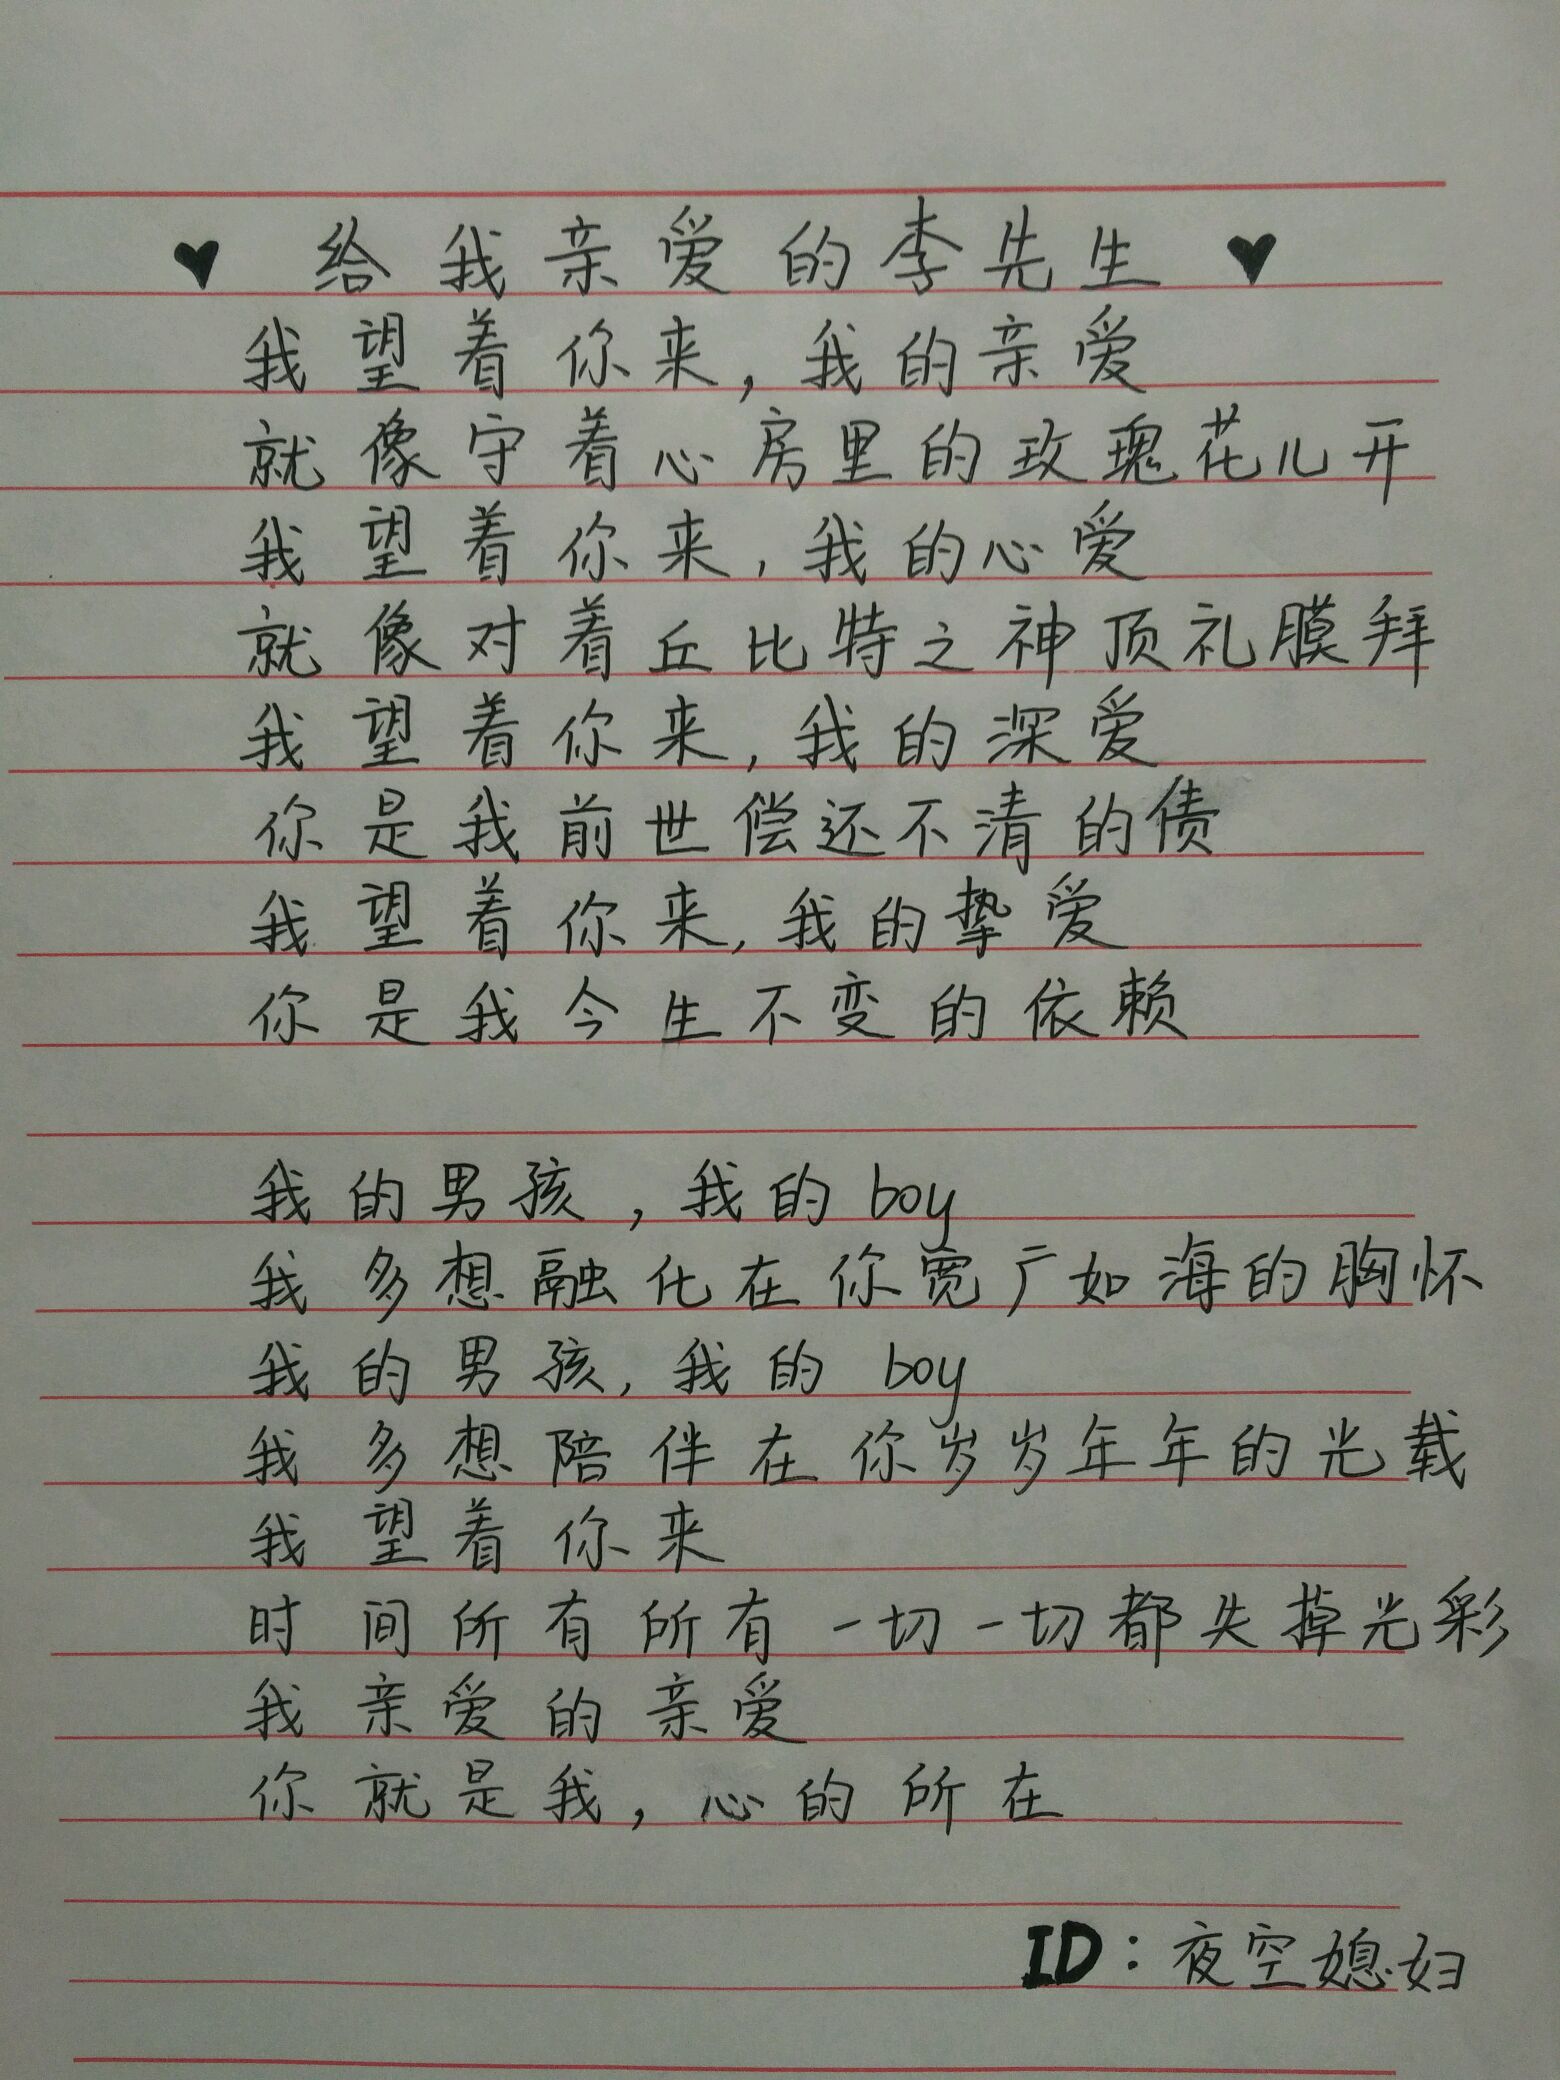 ♥ 给我亲爱的李先生 ♥
我望着你来,我的亲爱
就像守着心房里的玫瑰花儿开
我望着你来,我的心爱
就像对着丘比特之神顶礼膜拜
我望着你来,我的深爱
你是我前世偿还不清的债
我望着你来,我的挚爱
你是我今生不变的依赖
我的男孩,我的boy
我多想融化在你宽广如海的胸怀
我的男孩,我的boy
我多想陪伴在你岁岁年年的光载
我望着你来
时间所有所有一切一切都失掉光彩
我亲爱的亲爱
你就是我,心的所在
ID:夜空媳妇